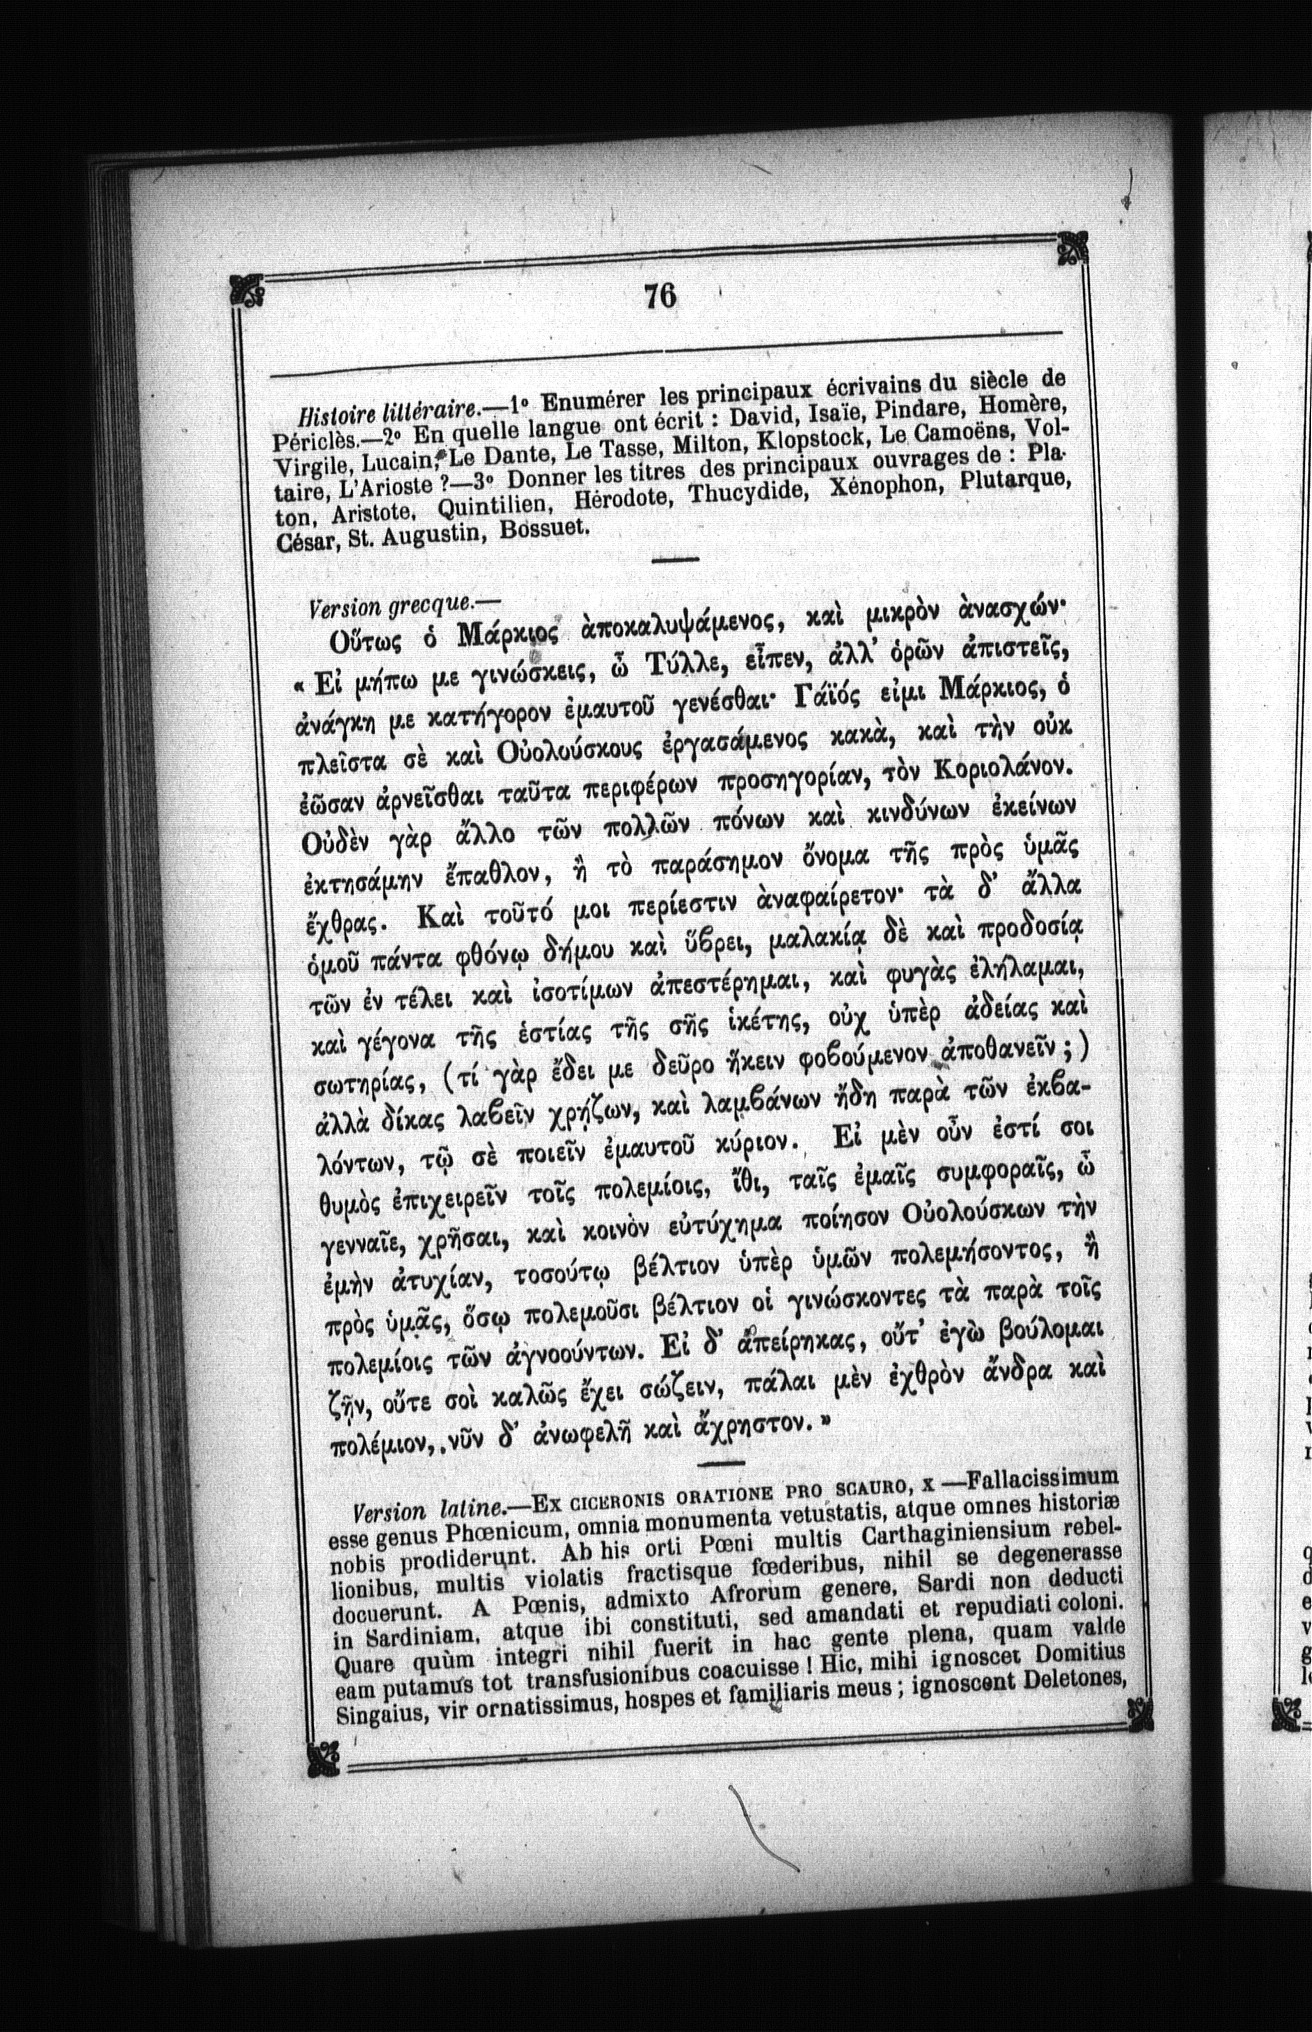 76
Histoire littéraire.—1º Enumérer les principaux écrivains du siècle de
Périclès.—2º En quelle langue ont écrit : David, Isaïe, Pindare, Homère,
Virgile, Lucain, Le Dante, Le Tasse, Milton, Klopstock, Le Camoëns, Vol-
taire, L'Arioste ?—3º Donner les titres des principaux ouvrages de : Pla-
ton, Aristote, Quintilien, Hérodote, Thucydide, Xénophon, Plutarque,
César, St. Augustin, Bossuet.
Version grecque.—
Οὕτως ὁ Μάρκιος ἀποκαλυψάμενος, καὶ μικρὸν ἀνασχών·
« Εἰ μήπω με γινώσκεις, ὦ Τύλλε, εἶπεν, ἀλλ' ὁρῶν ἀπιστεῖς,
ἀνάγκη με κατήγορον ἐμαυτοῦ γενέσθαι· Γάϊός εἰμι Μάρκιος, ὁ
πλεῖστα σὲ καὶ Οὐολούσκους ἐργασάμενος κακὰ, καὶ τὴν οὐκ
ἐῶσαν ἀρνεῖσθαι ταῦτα περιφέρων προσηγορίαν, τὸν Κοριολάνον.
Οὐδὲν γὰρ ἄλλο τῶν πολλῶν πόνων καὶ κινδύνων ἐκείνων
ἐκτησάμην ἔπαθλον, ἢ τὸ παράσημον ὄνομα τῆς πρὸς ὑμᾶς
ἔχθρας. Καὶ τοῦτό μοι περίεστιν ἀναφαίρετον· τὰ δ' ἄλλα
ὁμοῦ πάντα φθόνῳ δήμου καὶ ὕβρει, μαλακίᾳ δὲ καὶ προδοσίᾳ
τῶν ἐν τέλει καὶ ἰσοτίμων ἀπεστέρημαι, καὶ φυγὰς ἐλήλαμαι,
καὶ γέγονα τῆς ἑστίας τῆς σῆς ἱκέτης, οὐχ ὑπὲρ ἀδείας καὶ
σωτηρίας, (τί γὰρ ἔδει με δεῦρο ἥκειν φοβούμενον ἀποθανεῖν ;)
ἀλλὰ δίκας λαβεῖν χρῄζων, καὶ λαμβάνων ἤδη παρὰ τῶν ἐκβα-
λόντων, τῷ σὲ ποιεῖν ἐμαυτοῦ κύριον. Εἰ μὲν οὖν ἐστί σοι
θυμὸς ἐπιχειρεῖν τοῖς πολεμίοις, ἴθι, ταῖς ἐμαῖς συμφοραῖς, ὦ
γενναῖε, χρῆσαι, καὶ κοινὸν εὐτύχημα ποίησον Οὐολούσκων τὴν
ἐμὴν ἀτυχίαν, τοσούτῳ βέλτιον ὑπὲρ ὑμῶν πολεμήσοντος, ἢ
πρὸς ὑμᾶς, ὅσῳ πολεμοῦσι βέλτιον οἱ γινώσκοντες τὰ παρὰ τοῖς
πολεμίοις τῶν ἀγνοούντων. Εἰ δ' ἀπείρηκας, οὔτ' ἐγὼ βούλομαι
ζῇν, οὔτε σοὶ καλῶς ἔχει σώζειν, πάλαι μὲν ἐχθρὸν ἄνδρα καὶ
πολέμιον, νῦν δ' ἀνωφελῆ καὶ ἄχρηστον. »
Version latine.—EX CICERONIS ORATIONE PRO SCAURO, X —Fallacissimum
esse genus Phœnicum, omnia monumenta vetustatis, atque omnes historiæ
nobis prodiderunt. Ab his orti Pœni multis Carthaginiensium rebel-
lionibus, multis violatis fractisque fœderibus, nihil se degenerasse
docuerunt. A Pœnis, admixto Afrorum genere, Sardi non deducti
in Sardiniam, atque ibi constituti, sed amandati et repudiati coloni.
Quare quùm integri nihil fuerit in hac gente plena, quam valde
eam putamus tot transfusionibus coacuisse ! Hic, mihi ignoscet Domitius
Singaius, vir ornatissimus, hospes et familiaris meus ; ignoscent Deletones,